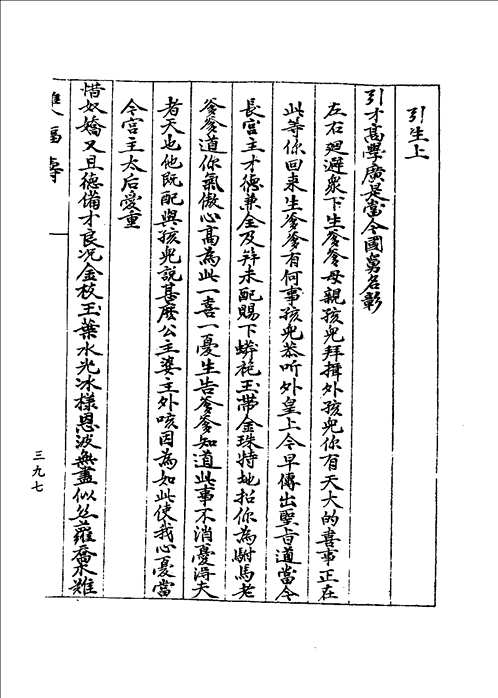 引生上
引才高學廣是當今國舅名彰
左右廻避衆下生爹爹母親孩兒拜揖外孩兒你有天大的喜事正在
此等你回来生爹爹有何事孩兒恭听外皇上今早傳出聖旨道當今
長宮主才德兼全及笄未配賜下蟒袍玉帶金珠特地招你為駙馬老
爹爹道你氣傲心高為此一喜一憂生告爹爹知道此事不消憂淂夫
者天也他既配與孩兒說甚麽公主婆主外咳因為如此使我心憂當
今宫主太后愛重
惜奴嬌又且德備才良况金枝玉葉水光冰樣恩波無盡似丝蘿喬木難
三九七